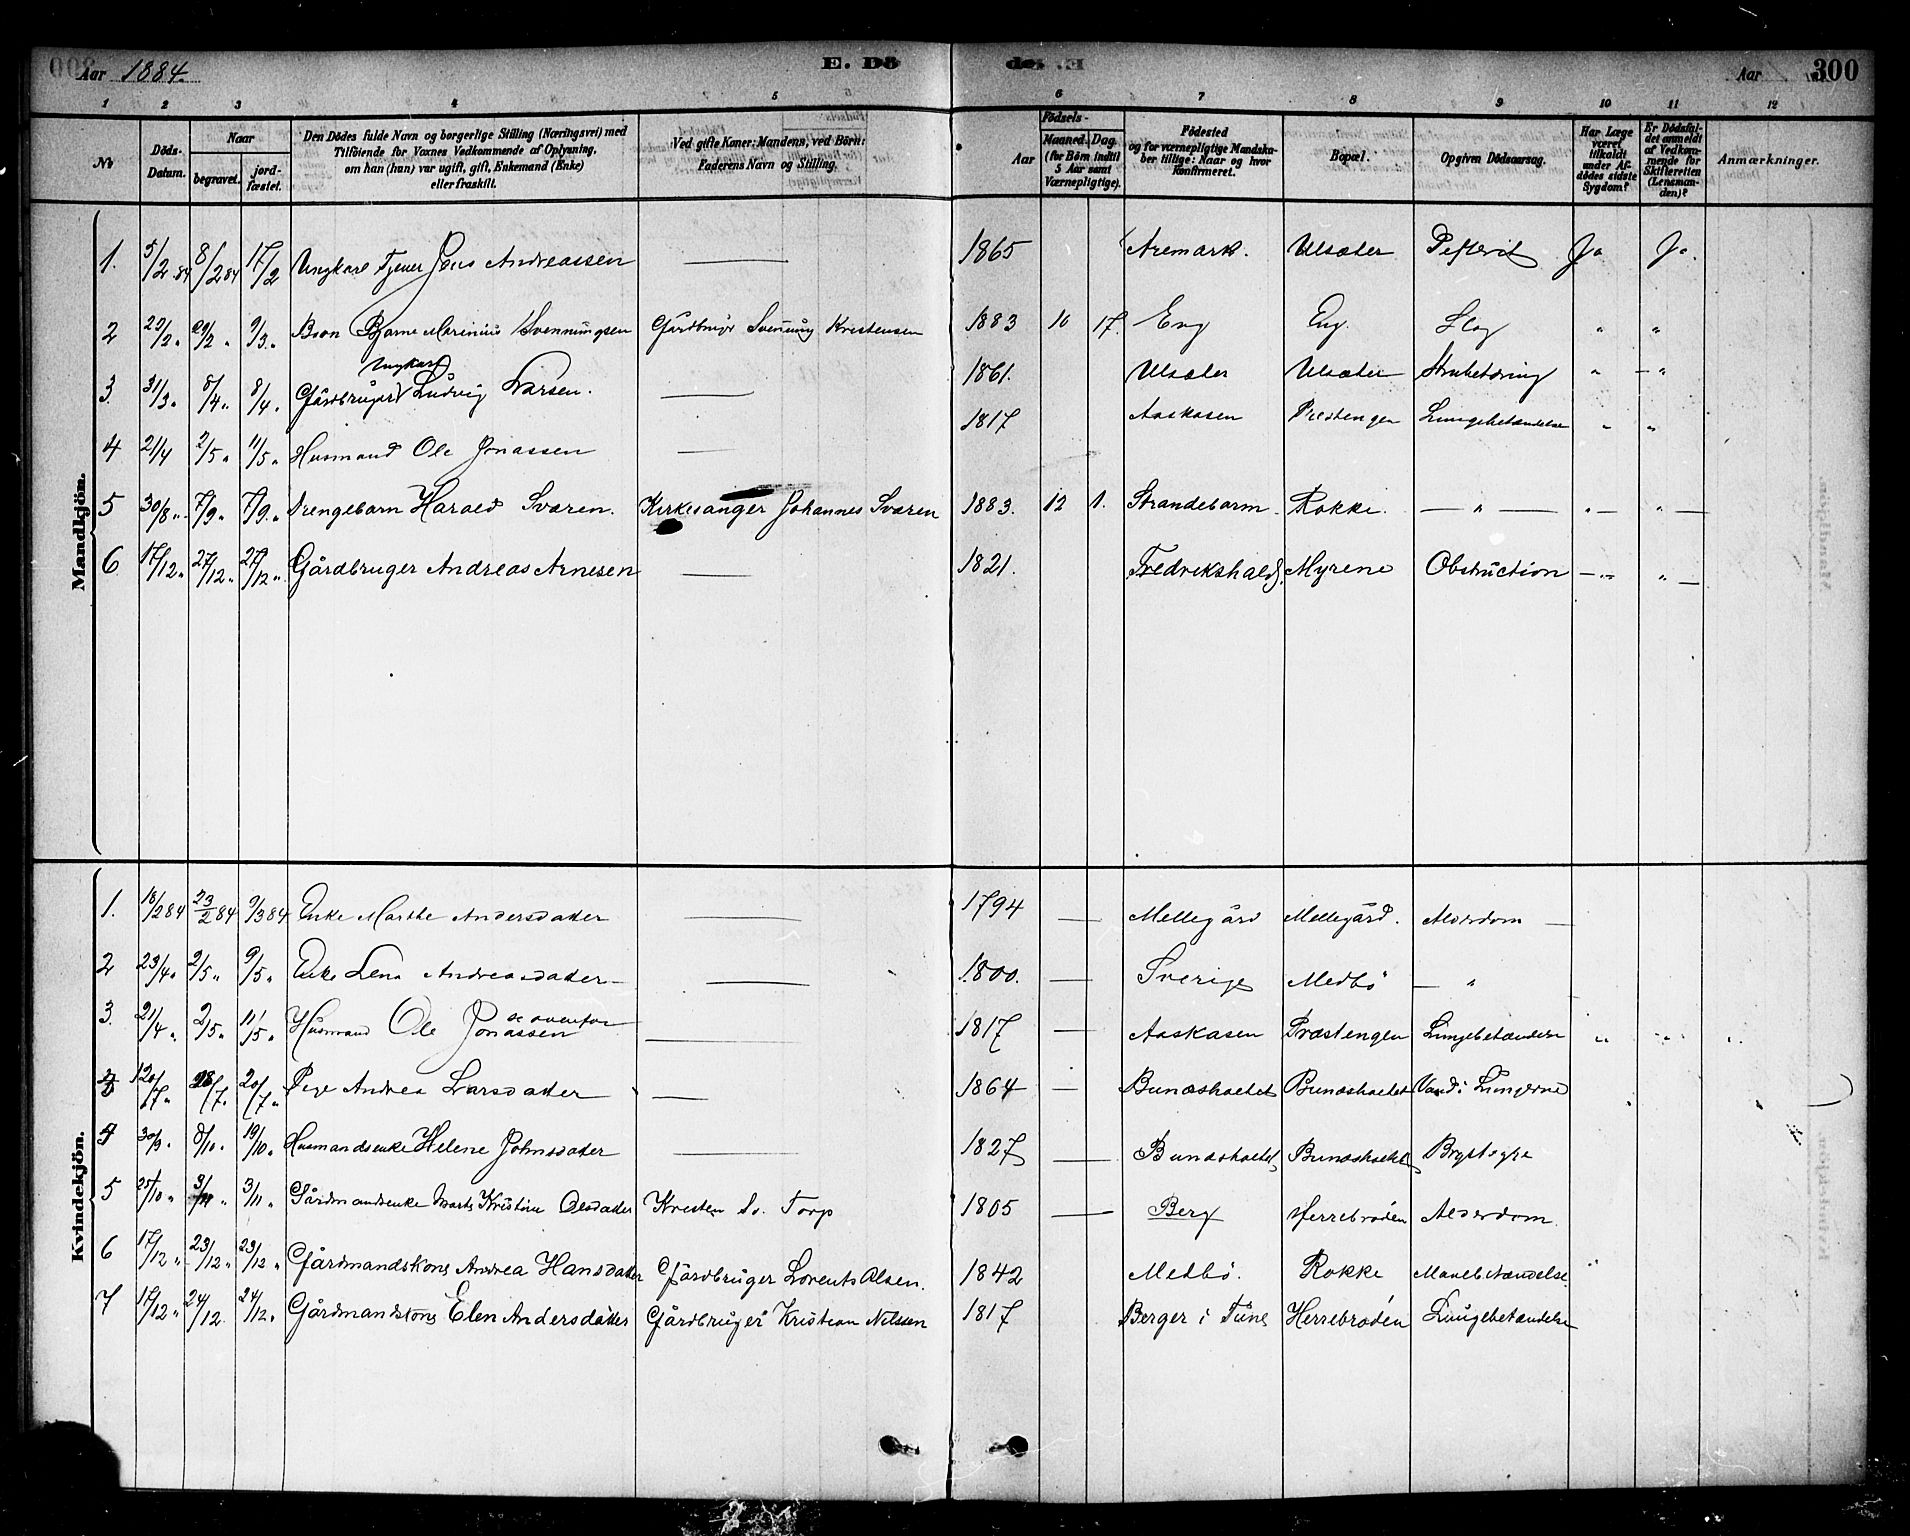 Aar 1884.
E. Dö
de. E
Aar
300
1 2 3 4 5 6 7 8 9 10 11 12
No
Döds-Datum.
Naar
begravet.
jord-fæstet.
Den Dödes fulde Navn og borgerlige Stilling (Næringsvei) med
Tilföiende for Voxnes Vedkommende af Oplysning,
om han (hun) var ugift, gift, Enkemand (Enke)
eller fraskilt.
Ved gifte Koner: Mandens, ved Börn:
Faderens Navn og Stilling.
Aar
Födsels-
Maaned. Dag.
(for Börn indtil
5 Aar samt
Værnepligtige).
Födested
og for værnepligtige Mandska-
ber tillige: Naar og hvor
Konfirmeret.
Bopæl.
Opgiven Dödsaarsag.
Har Læge
været
tilkaldt
under Af-
dödes sidste
Sygdom?
Er Dödsfal-
det anmeldt
af Vedkom-
mende for
Skifteretten
(Lensman-
den)?
Anmærkninger.
Mandkjön.
1. 5/2 84 8/2 84 17/2 Ungkarl Tjener Jens Andreassen — 1865 Aremark. Ulsæter Ja Ja.
2 29/2 „ 9/3 „ Barn Bjarne Marinius Svenningsen Gårdbrugr Svenning Kristensen 1883 10 17. Eng Eng. Slag „ „
Ungkarl
3. 31/3 „ 8/4 „ 8/4 „ Gårdbruger Ludvig Larsen. — 1861. Ulsæter Ulsæter Strubetæring „ — „
4 21/4 2/5 „ 11/5 „ Husmand Ole Jonassen — 1817 Aaskasen Prestengen Lungebetændelse „ „
5 30/8 „ 7/9 „ 7/9 „ Drengebarn Harald Svaren. Kirkesanger Johannes Svaren 1883. 12 1. Strandebarm. Rokke. — „ — „ — „ —
6 17/12 „ 27/12 „ 27/12 „ Gårdbruger Andreas Arnesen — 1821. Fredrikshald. Myrene Obstruction — „ — „ —
Kvindekjön.
1. 18/2 84 23/2 84 9/3 84 Enke Marthe Andersdatter — 1794 — Mellegård Mellegård. Alderdom —
2 23/4 „ 2/5 „ 9/5 „ Enke Lena Andreasdatter — 1800. — Sverige Medbö — „
3. 21/4 „ 2/5 „ 11/5 „ Husmand Ole Jonassen se ovenfor — 1817 — Aaskasen Præstengen Lungebetændelse „ „ „
3 /7 „ 28/7. 20/7 „ Pige Andrea Larsdatter — 1864 — Vand i Lungerne
4 30/9. 8/10. 19/10 „ Husmandsenke Helene Johnsdatter — 1827 — Brystsyge
5 25/10 „ 3/11 „ 3/11 „ Gårdmandsenke Marte Kristine Olsdatter Kristen So. Torp 1805 — Berg Herrebröden Alderdom.
6 17/12 „ 23/12 „ 23/12 „ Gårdmandskone Andrea Hansdatter Gårdbruger Lorents Olsen. 1842 Medbö. Rokke Mavebetændelse „
7 17/12 „ 24/12. 24/12. Gårdmandskone Elen Andersdatter Gårdbruger Kristian Nilssen 1817 Berger i Tune Herrebröden Lungebetændelse